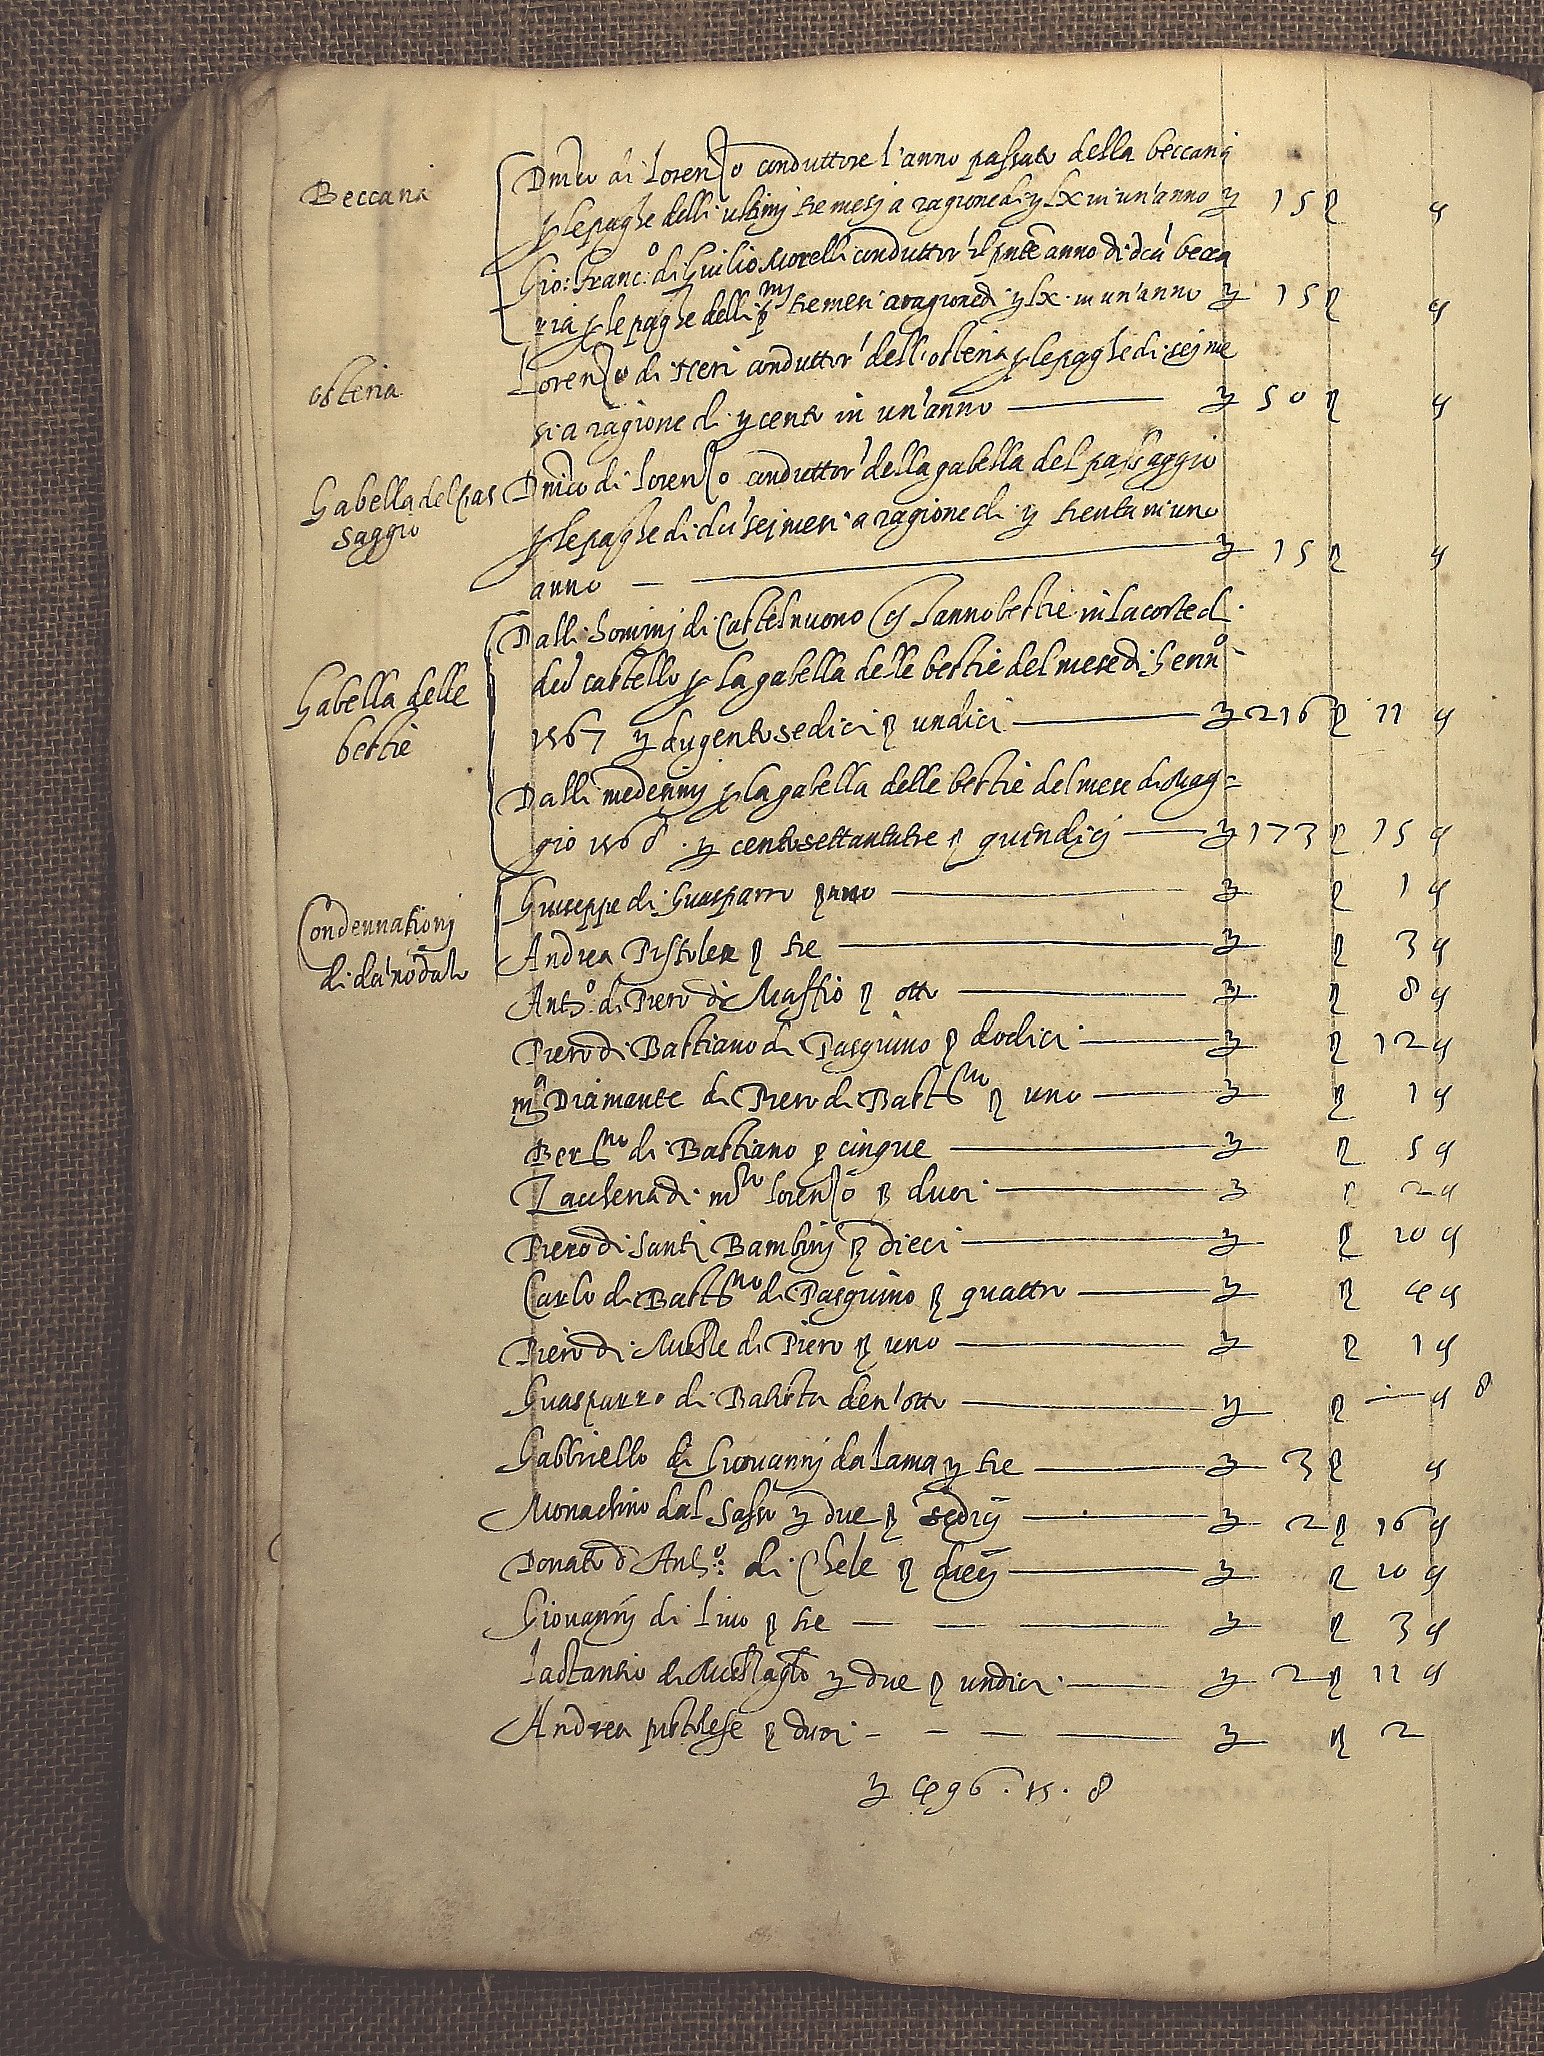 Beccaria
Dnico di Lorenzo conduttore l'anno passato della beccaria
p le paghe delli ultimj tre mesj a ragione di ł lx in un'anno ł 15 ß ₰
Gio: Franc.o di Giulio Morelli conduttor' il pnte anno di dca becca
ria p le paghe delli p.mj tre mesi a ragione di ł lx in un'anno ł 15 ß ₰
osteria
Lorenzo di Neri conduttor' dell'osteria p le paghe di sej me
si a ragione di ł cento in un'anno ł 50 ß ₰
Gabella del pas
saggio
Dnico di Lorenzo conduttor' della gabella del passaggio
p le paghe di sej mesi a ragione di ł trenta in uno
anno ł 15 ß ₰
Gabella delle
bestie
Dalli hominj di Castelnuovo hanno bestie in la corte di
do castello p la gabella delle bestie del mese di Genno
1567 ł dugento sedici ß undici ł 216 ß 11 ₰
Dalli medesimj p la gabella delle bestie del mese di Mag=
gio 1568 . ł cento settantatre ß quindicj ł 173 ß 15 ₰
Condennationj
di da'no dato
Giuseppe di Guasparro ß uno ł ß 1 ₰
Andrea Pistolese ß tre ł ß 3 ₰
Ant.o di Piero di Maffio ß otto ł ß 8 ₰
Piero di Bastiano di Pasquino ß dodici ł ß 12 ₰
m.a Diamante di Piero di Bart.mo ß uno ł ß 1 ₰
Ber.no di Bastiano ß cinque ł ß 5 ₰
Zaccheria di m.o Lorenzo ß duoi ł ß 2 ₰
Piero di Santi Bambinj ß dieci ł ß 10 ₰
Carlo di Bart.mo di Pasquino ß quattro ł ß 4 ₰
Piero di di Piero ß uno ł ß 1 ₰
Guasparro di Batista den' otto ł ß — ₰ 8
Gabbriello di Giovannj da Lama ł tre ł 3 ß ₰
Monachino dal Sasso ł due ß sedicj ł 2 ß 16 ₰
Donato d'Ant.o di Chele ß diecj ł ß 10 ₰
Giovannj di Livo ß tre ł ß 3 ₰
Lattantio di ł due ß undici ł 2 ß 11 ₰
Andrea pistolese ß duoi ł ß 2
ł 496 . 15 . 8